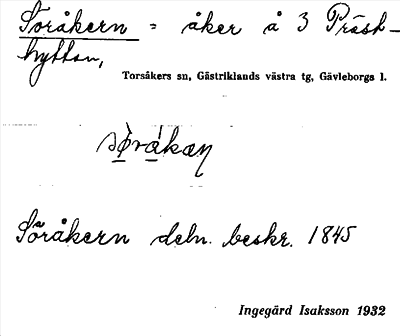 Söråkern = åker å 3 Präst-
hyttan,
Torsåkers sn, Gästriklands västra tg, Gävleborgs l.
Söråkern deln. beskr. 1845
Ingegärd Isaksson 1932